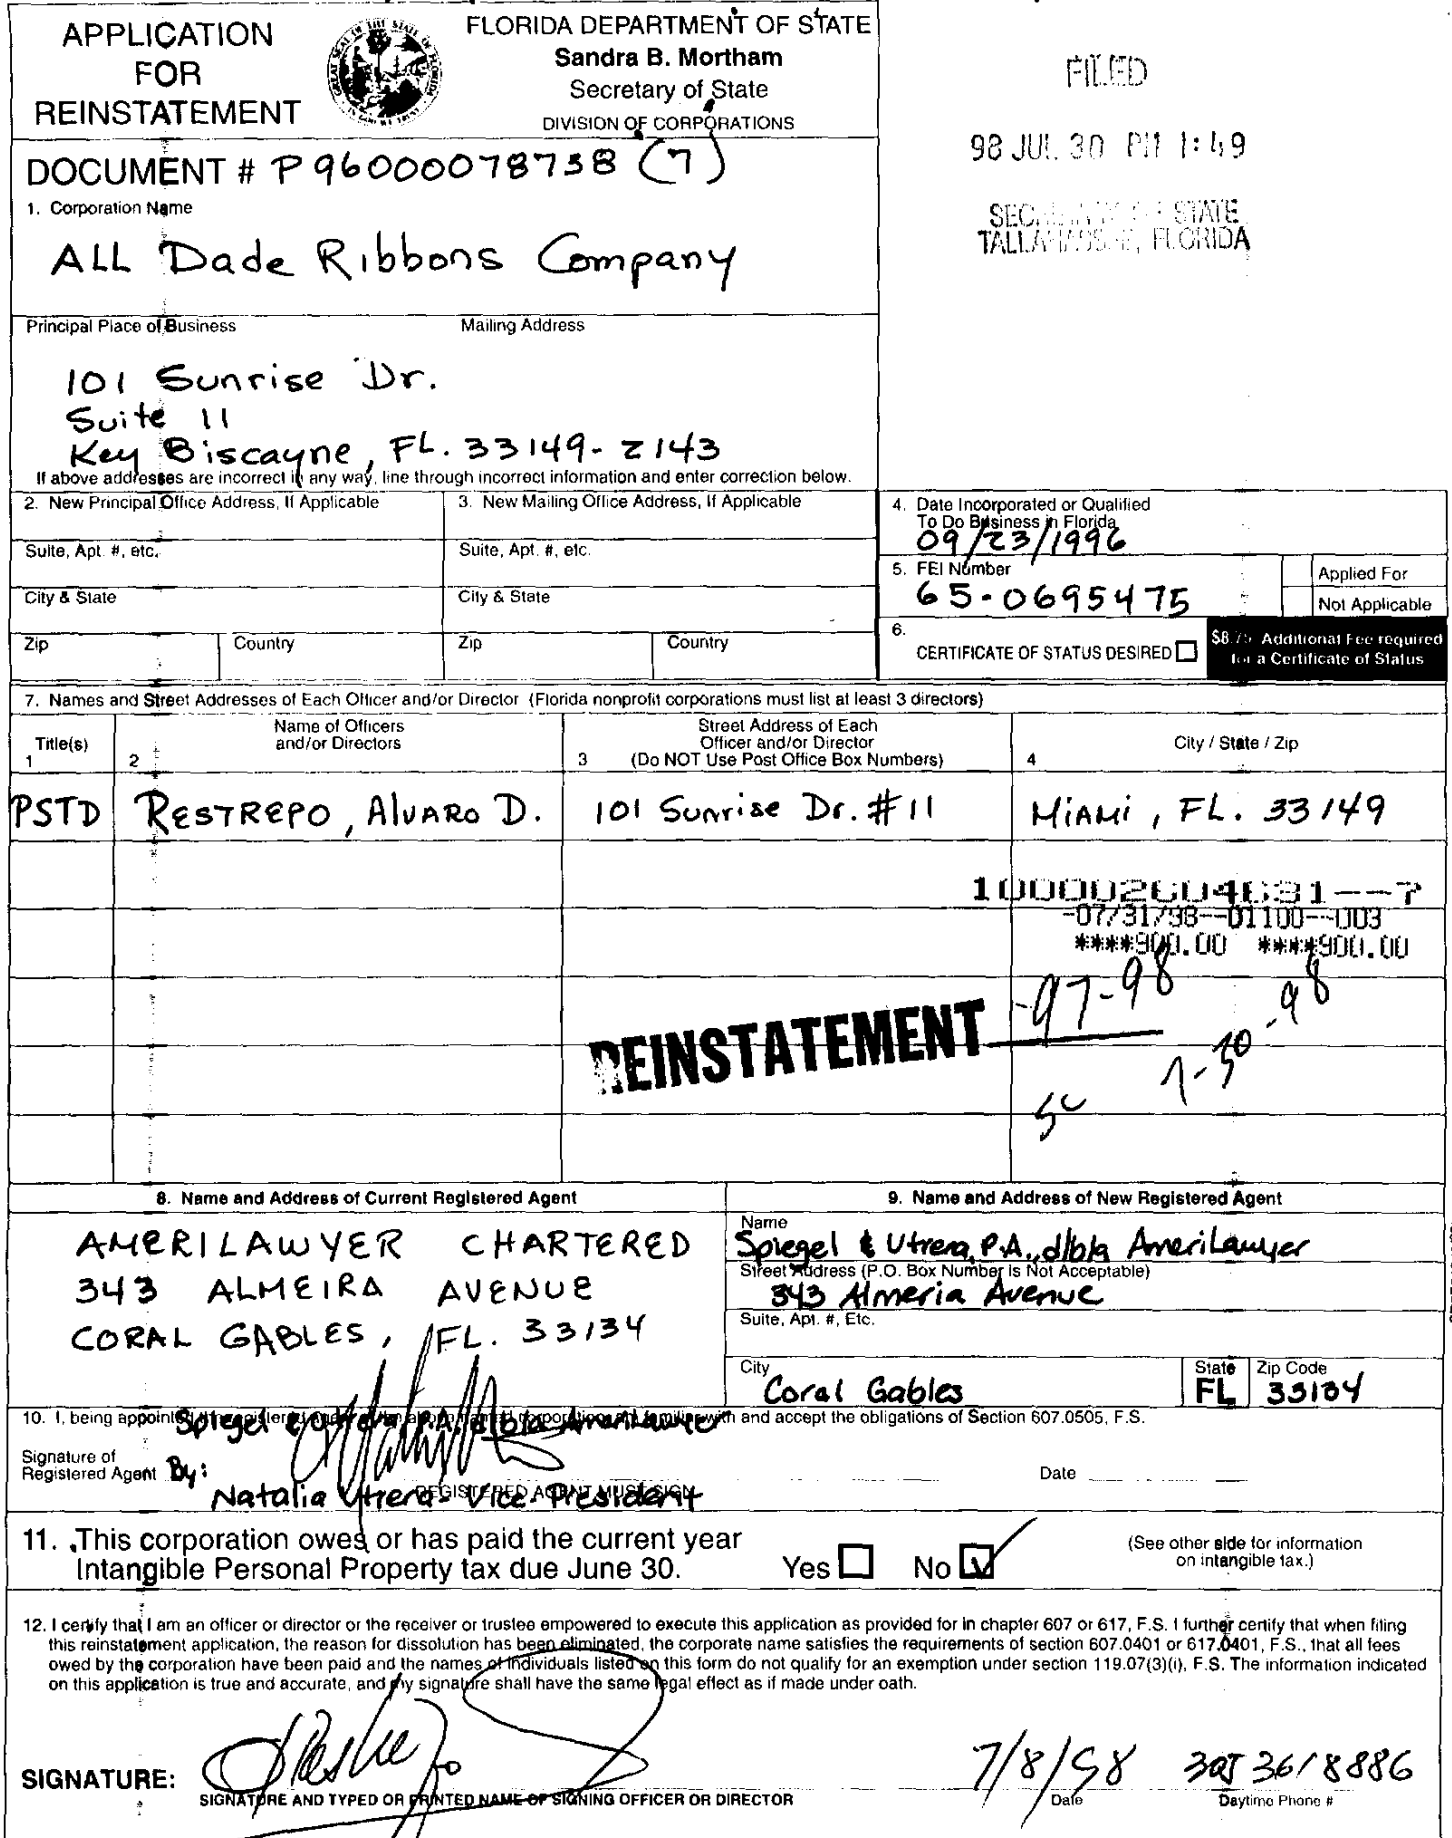 APPLICATION
FOR
REINSTATEMENT
FLORIDA DEPARTMENT OF STATE
Sandra B. Mortham
Secretary of State
DIVISION OF CORPORATIONS
FILED
98 JUL 30 PM 1:49
STATE
FLORIDA
DOCUMENT # P96000078738 (7)
1. Corporation Name
ALL Dade Ribbons Company
Principal Place of Business Mailing Address
101 Sunrise Dr.
Suite 11
Key Biscayne, FL. 33149-2143
If above addresses are incorrect in any way, line through incorrect information and enter correction below.
2. New Principal Office Address, If Applicable
3. New Mailing Office Address, If Applicable
4. Date Incorporated or Qualified
To Do Business in Florida
09/23/1996
Suite, Apt. #, etc.
Suite, Apt. #, etc.
5. FEI Number
65-0695475
Applied For
Not Applicable
City & State
City & State
6.
CERTIFICATE OF STATUS DESIRED
$8.75 Additional Fee required
for a Certificate of Status
Zip Country
Zip Country
7. Names and Street Addresses of Each Officer and/or Director (Florida nonprofit corporations must list at least 3 directors)
Title(s)
1
Name of Officers
and/or Directors
2
Street Address of Each
Officer and/or Director
3 (Do NOT Use Post Office Box Numbers)
City / State / Zip
4
PSTD RESTREPO, Alvaro D. 101 Sunrise Dr. #11 Miami, FL. 33149
100002604631--7
-07/31/98--01100--003
****900.00 ****900.00
REINSTATEMENT -97-98
7-30-98
8. Name and Address of Current Registered Agent
AMERILAWYER CHARTERED
343 ALMEIRA AVENUE
CORAL GABLES, FL. 33134
9. Name and Address of New Registered Agent
Name
Spiegel & Utrera, P.A., d/b/a AmeriLawyer
Street Address (P.O. Box Number Is Not Acceptable)
343 Almeria Avenue
Suite, Apt. #, Etc.
City
Coral Gables
State
FL
Zip Code
33134
10. I, being appointed the registered agent of the above named corporation, am familiar with and accept the obligations of Section 607.0505, F.S.
Spiegel & Utrera, P.A., d/b/a AmeriLawyer
Signature of
Registered Agent By:
Date
Natalia Utrera - Vice-President
REGISTERED AGENT MUST SIGN
11. This corporation owes or has paid the current year
Intangible Personal Property tax due June 30.
Yes No
(See other side for information
on intangible tax.)
12. I certify that I am an officer or director or the receiver or trustee empowered to execute this application as provided for in chapter 607 or 617, F.S. I further certify that when filing
this reinstatement application, the reason for dissolution has been eliminated, the corporate name satisfies the requirements of section 607.0401 or 617.0401, F.S., that all fees
owed by the corporation have been paid and the names of individuals listed on this form do not qualify for an exemption under section 119.07(3)(i), F.S. The information indicated
on this application is true and accurate, and my signature shall have the same legal effect as if made under oath.
SIGNATURE:
7/8/98 305 3618886
SIGNATURE AND TYPED OR PRINTED NAME OF SIGNING OFFICER OR DIRECTOR
Date
Daytime Phone #